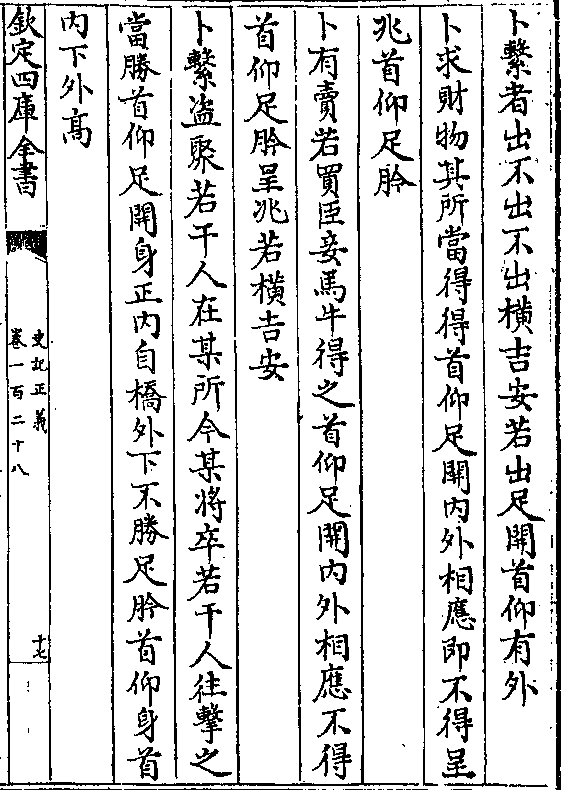 卜繫者出不出不出橫吉安若出足開首仰有外
卜求財物其所當得得首仰足開內外相應即不得呈
兆首仰足肣
卜有賣若買臣妾馬牛得之首仰足開內外相應不得
首仰足肣呈兆若橫吉安
卜擊盜聚若干人在某所今某將卒若干人往擊之
當勝首仰足開身正內自橋外下不勝足肣首仰身首
內下外高
欽定四庫全書
史記正義
卷一百二十八
十七